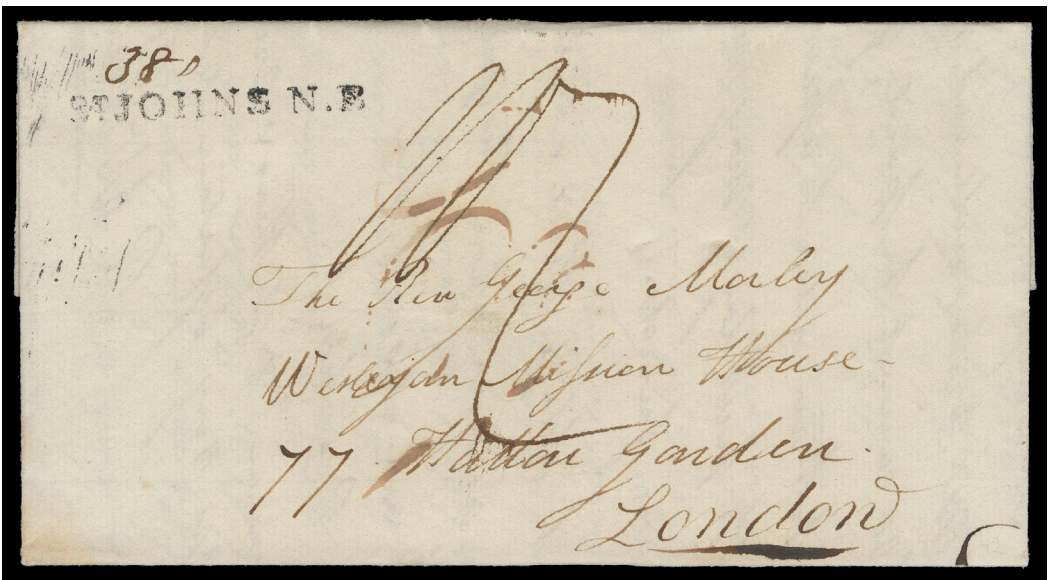 38
St JOHNS N.B
The Rev George Morley
Wesleyan Mission House -
77 Hatton Garden.
London